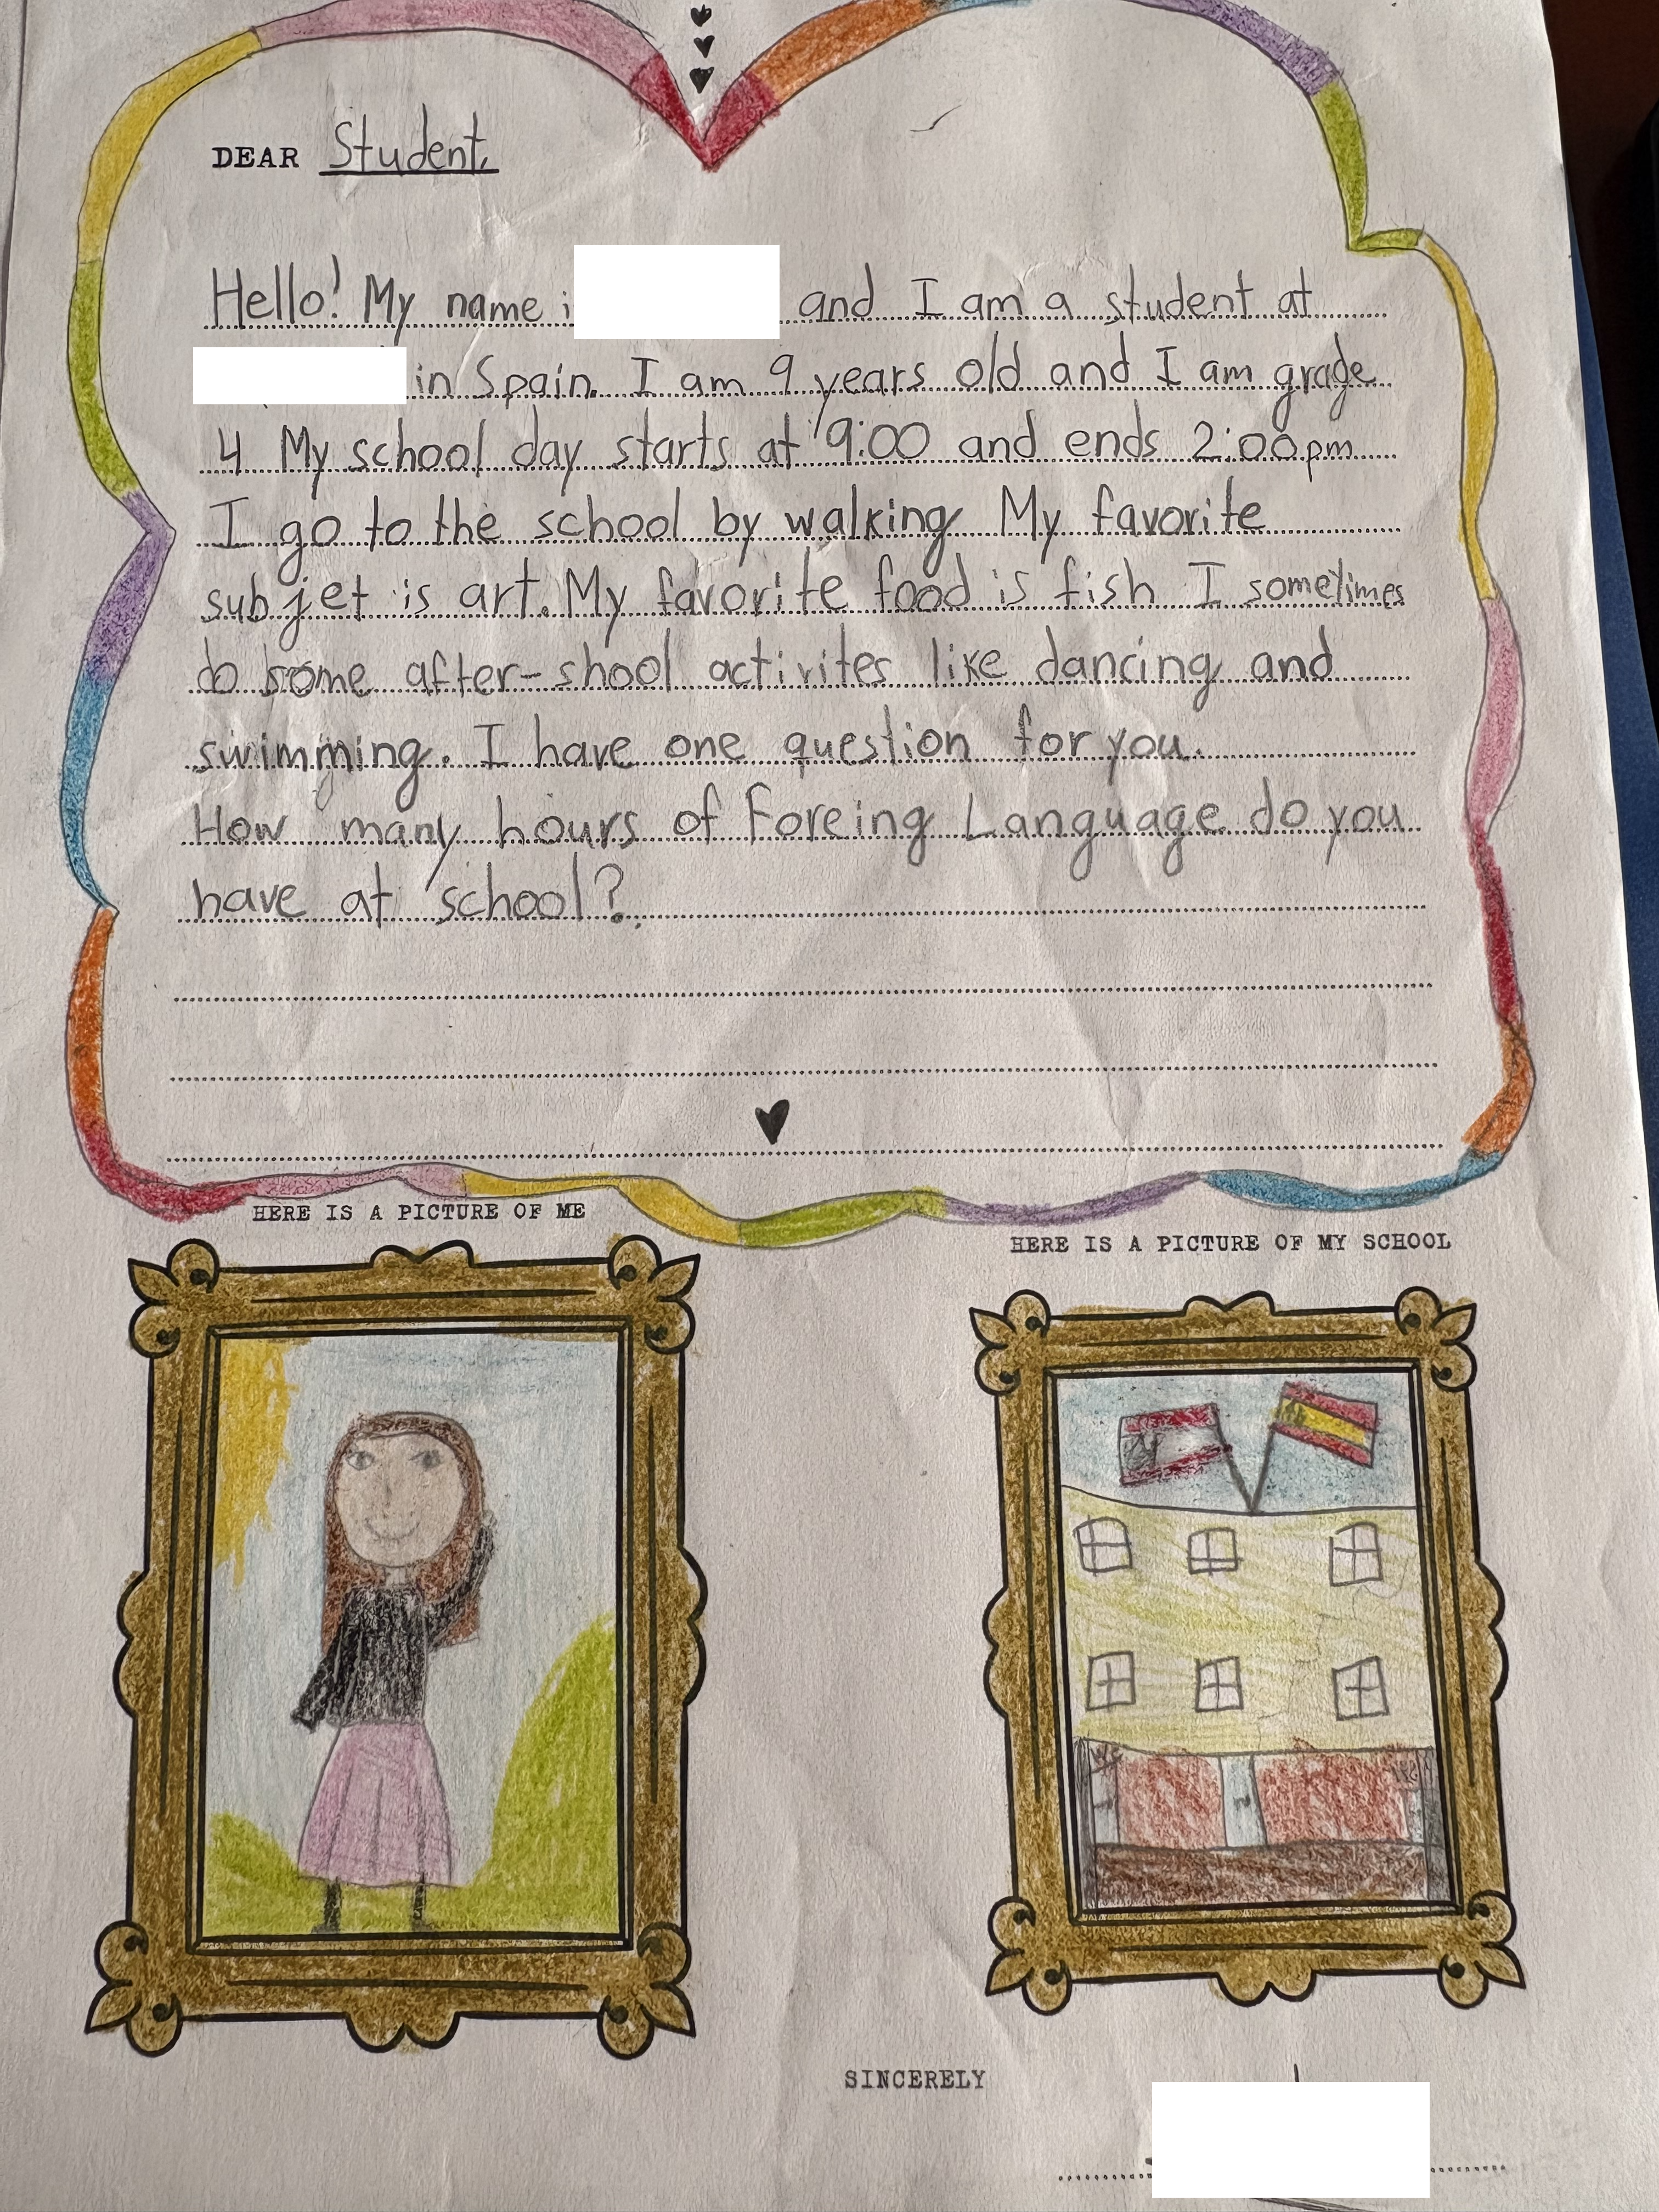 DEAR Student,
Hello! My name i and I am a student at
in Spain. I am 9 years old and I am grade
4 My school day starts at 9:00 and ends 2:00pm
I go to the school by walking My favorite
subjet is art. My favorite food is fish I sometimes
do some after-shool activites like dancing and
swimming. I have one question for you.
How many hours of Foreing Language do you
have at school?
HERE IS A PICTURE OF ME
HERE IS A PICTURE OF MY SCHOOL
WC
SINCERELY